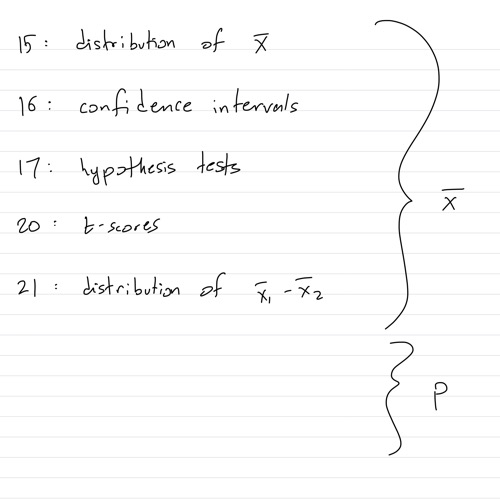 15: distribution of x̄
16: confidence intervals
17: hypothesis tests
20: t-scores
21: distribution of x̄₁ - x̄₂
x̄
p